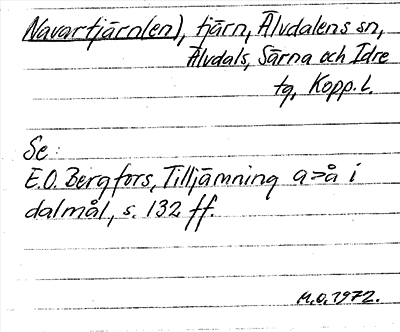 Navartjärn(en), tjärn, Älvdalens sn,
Älvdals, Särna och Idre
tg, Kopp. l.
Se:
E.O. Bergfors, Tilljämning a>å i
dalmål, s. 132 ff.
M.O. 1972.